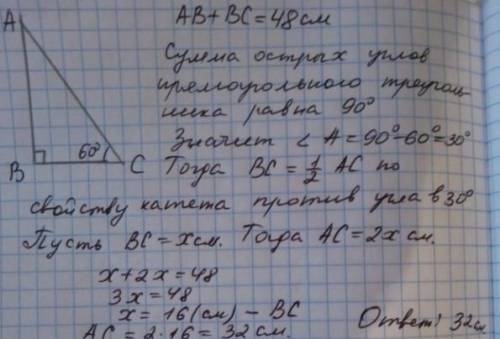 A
AB+BC=48 см
Сумма острых углов
прямоугольного треуголь
ника равна 90°
Значит < A=90°-60°=30°
B 60° C
Тогда BC=1/2 AC по
свойству катета против угла в 30°
Пусть BC=x см. Тогда AC=2x см.
x+2x=48
3x=48
x=16(см) – BC
AC=2·16=32 см.
Ответ: 32 см